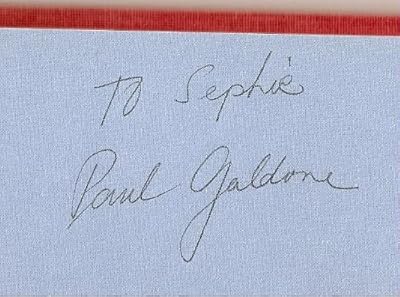 To Sephie
Paul Galdone